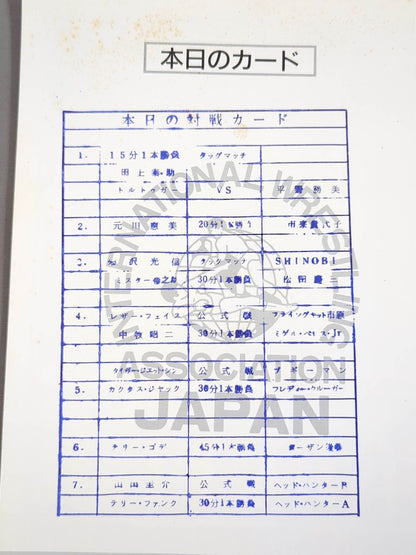 本日のカード
本日の対戦カード
1. 15分1本勝負 タッグマッチ
田上泰助
トルトゥガー VS 平野勝美
2. 元川恵美 20分1本勝負 市来貴代子
3. 光信 タッグマッチ SHINOBI
ミスター雁之助 30分1本勝負 松田慶三
4. レザー・フェイス 公式戦 フライングキッド市原
中牧昭二 30分1本勝負 ミゲル・ペレス・Jr
タイガー・ジェット・シン 公式戦 ブギーマン
5. カクタス・ジャック 30分1本勝負 フレディー・クルーガー
6. テリー・ゴディ 45分1本勝負 ターザン後藤
7. 山田圭介 公式戦 ヘッド・ハンターB
テリー・ファンク 30分1本勝負 ヘッド・ハンターA
INTERNATIONAL WRESTLING
ASSOCIATION
JAPAN